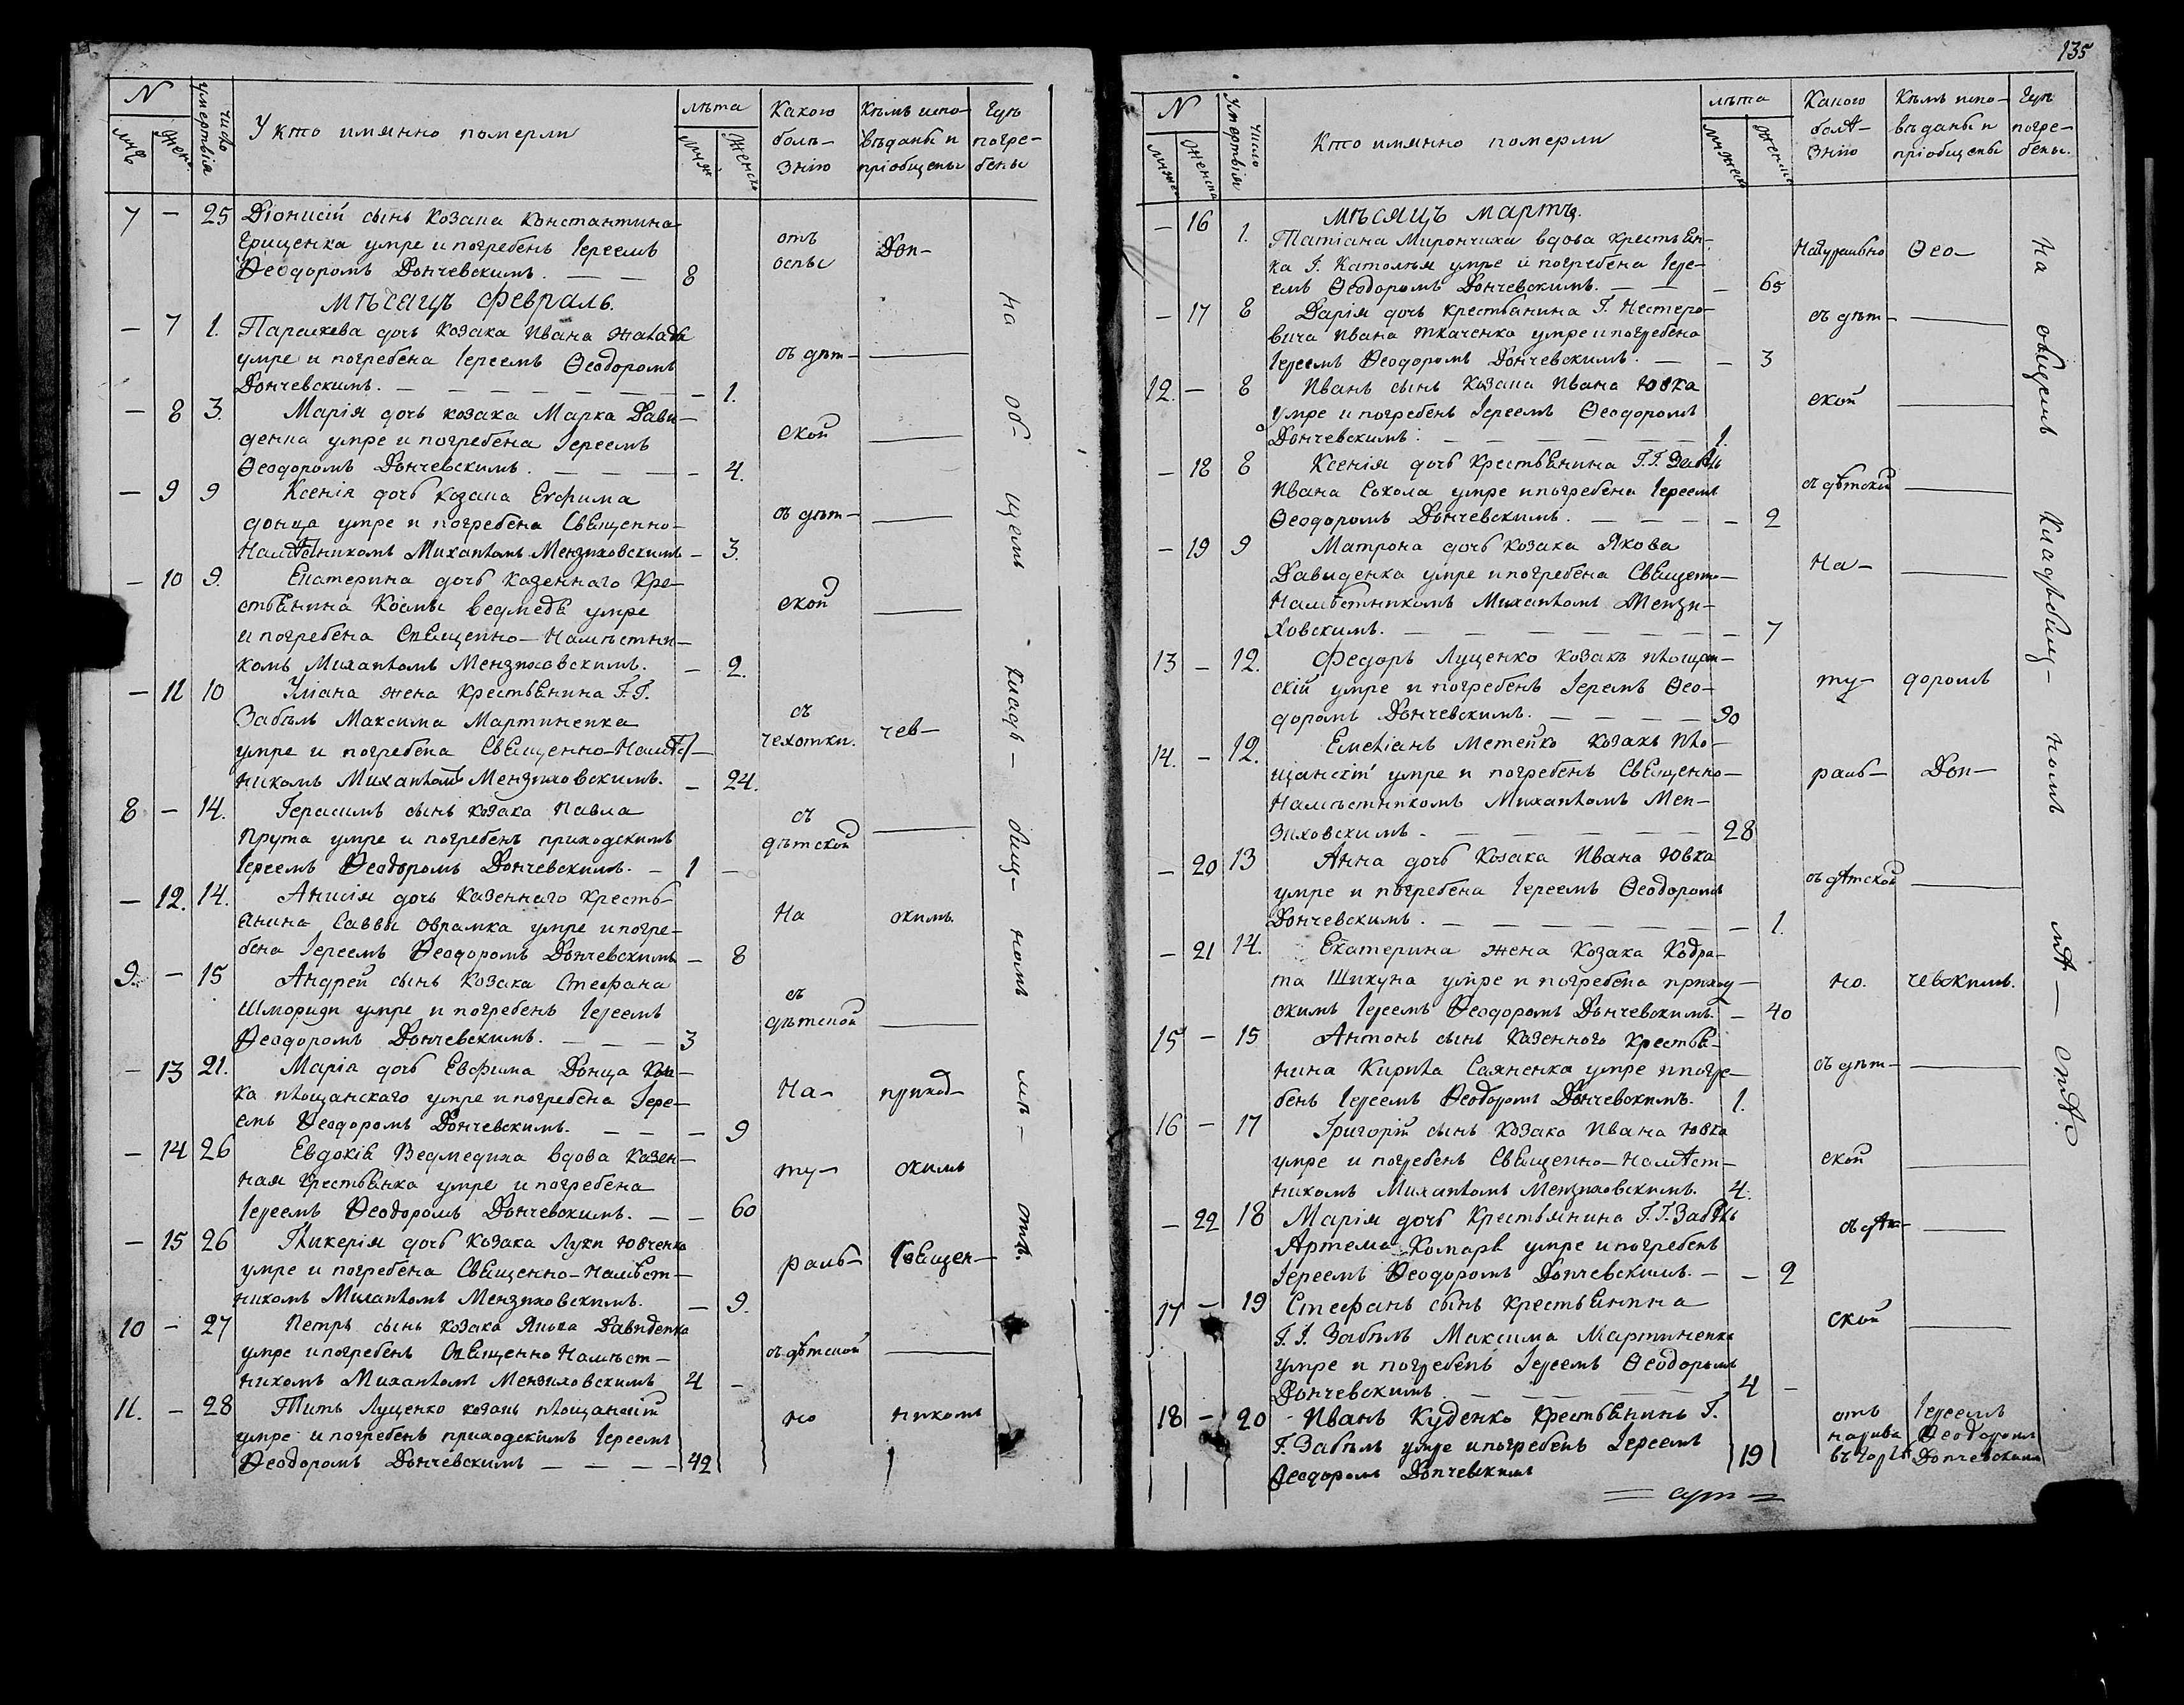 135
N
числ умертвія
У кто имянно померли
лѣта
Какою болѣ-знію
Кѣмъ испо-вѣданы и пріобщены
Гдѣ погре-бены
7 — 25 Діонисій сынъ козака Константина
Грищенка умре и погребенъ Іереемъ
Ѳеодоромъ Дончевскимъ. — — 8
отъ оспы
Дон-
мѣсяцъ Февраль.
— 7 1. Параскева дочь козака Ивана
умре и погребена Іереемъ Ѳеодоромъ
Дончевскимъ. — — — — — — 1.
съ дѣт-
— 8 3. Марія дочь козака Марка Дави-
денка умре и погребена Іереемъ
Ѳеодоромъ Дончевскимъ. — — — — 4.
ской
— 9 9 Ксенія дочь козака Евфима
донца умре и погребена Священно-
Намѣстникомъ Михаиломъ Мензиховскимъ — 3.
съ дѣт-
— 10 9. Екатерина дочь казеннаго Кре-
стьянина Космы ведмедя умре
и погребена Священно-Намѣстни-
комъ Михаиломъ Мензиховскимъ. — 2.
ской
— 11 10 Уліана жена крестьянина Г. Г.
Забѣлъ Максима Мартиненка
умре и погребена Священно-Намѣст-
никомъ Михаиломъ Мензиховскимъ. — 24.
съ чехотки.
чев-
8 — 14. Герасимъ сынъ козака Павла
Прута умре и погребенъ приходскимъ
Іереемъ Ѳеодоромъ Дончевскимъ. — 1 —
съ дѣтской
— 12. 14. Анисія дочь казеннаго кресть-
янина Саввы Оврамка умре и погре-
бена Іереемъ Ѳеодоромъ Дончевскимъ — 8
На
скимъ
9. — 15 Андрей сынъ козака Стефана
умре и погребенъ Іереемъ
Ѳеодоромъ Дончевскимъ. — — — 3
съ дѣтской
— 13 21. Марія дочь Евфима Донца
ка площанскаго умре и погребена Іере-
емъ Ѳеодоромъ Дончевскимъ. — — — 9
На-
приход-
— 14 26 Евдокія Ведмедиха вдова казен-
ная крестьянка умре и погребена
Іереемъ Ѳеодоромъ Дончевскимъ. — — 60
ту-
скимъ
— 15 26 Гликерія дочь козака Луки Ювченка
умре и погребена Священно-Намѣст-
никомъ Михаиломъ Мензиховскимъ. — 9.
раль-
Священ-
10 — 27 Петръ сынъ козака Якова Давиденка
умре и погребенъ Священно Намѣст-
никомъ Михаиломъ Мензиховскимъ 4 —
съ дѣтской
11. — 28 Титъ Луценко козакъ площанскій
умре и погребенъ приходскимъ Іереемъ
Ѳеодоромъ Дончевскимъ — — — — 42
но
никомъ
На об- щемъ кладъ- бищ- номъ мѣ- стѣ.
N
Число умертвія
Кто имянно померли
лѣта
Какого болѣ-знію
Кѣмъ испо-вѣданы и пріобщены
Гдѣ погре-бены.
мѣсяцъ мартъ.
— 16 1. Татіана Мирончиха вдова крестьян-
ка Г. умре и погребена Іере-
емъ Ѳеодоромъ Дончевскимъ. — — — 65
Натурально
Ѳео-
— 17 8 Дарія дочь крестьянина Г. Нестеро-
вича Ивана Ткаченка умре и погребена
Іереемъ Ѳеодоромъ Дончевскимъ. — — 3
съ дѣт-
12. — 8 Иванъ сынъ козака Ивана Ювка
умре и погребенъ Іереемъ Ѳеодоромъ
Дончевскимъ. — — — — — — 1.
ской
— 18 8 Ксенія дочь крестьянина Г. Г. Забѣлъ
Ивана Сокола умре и погребена Іереемъ
Ѳеодоромъ Дончевскимъ. — — — — 2
съ дѣтской
— 19 9 Матрона дочь козака Якова
Давиденка умре и погребена Священно-
Намѣстникомъ Михаиломъ Мензи-
ховскимъ. — — — — — — — 7
На-
13 — 12. Федоръ Луценко козакъ площан-
скій умре и погребенъ Іереемъ Ѳео-
доромъ Дончевскимъ. — — — — 90
ту-
доромъ
14. — 12. Емеліанъ Метейко козакъ пло-
щанскій умре и погребенъ Священно-
Намѣстникомъ Михаиломъ Мен-
зиховскимъ. — — — — — — 28
раль-
Дон-
— 20 13 Анна дочь козака Ивана Ювка
умре и погребена Іереемъ Ѳеодоромъ
Дончевскимъ. — — — — — — — 1.
съ дѣтской
— 21 14. Екатерина жена козака Кодра-
та Шикуна умре и погребена приход-
скимъ Іереемъ Ѳеодоромъ Дончевскимъ. — 40
но.
чевскимъ.
15 — 15 Антонъ сынъ казенного крестья-
нина Кирила Саяненка умре и погре-
бенъ Іереемъ Ѳеодоромъ Дончевскимъ. 1.
съ дѣт-
16 — 17 Григорій сынъ козака Ивана Ювка
умре и погребенъ Священно-Намѣст-
никомъ Михаиломъ Мензиховскимъ. 4.
ской
— 22 18 Марія дочь крестьянина Г. Г. Забѣлъ
Артема Комаря умре и погребенъ
Іереемъ Ѳеодоромъ Дончевскимъ. — — 2
съ дѣт-
17 — 19 Стефанъ сынъ крестьянина
Г. Г. Забѣлъ Максима Мартиненка
умре и погребенъ Іереемъ Ѳеодоромъ
Дончевскимъ. — — — — 4 —
ской
18 — 20 Иванъ Куденко крестьянинъ Г.
Г. Забѣлъ умре и погребенъ Іереемъ
Ѳеодоромъ Дончевскимъ 19
отъ нарива въ горлѣ
Іереемъ Ѳеодоромъ Дончевскимъ
На общемъ кладъбищ- номъ мѣ- стѣ.